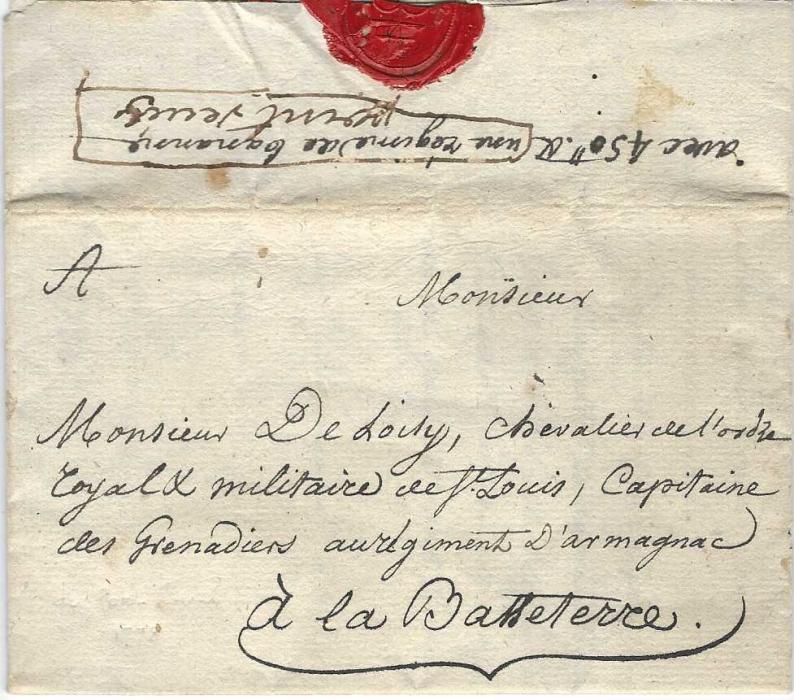 avec 450ʺ. & une régime de banane
point recus
A
Monsieur
Monsieur De Loisy, chevalier de l'ordre
royal & militaire de St. Louis, Capitaine
des Grenadiers au régiment D'armagnac
à la Basseterre.